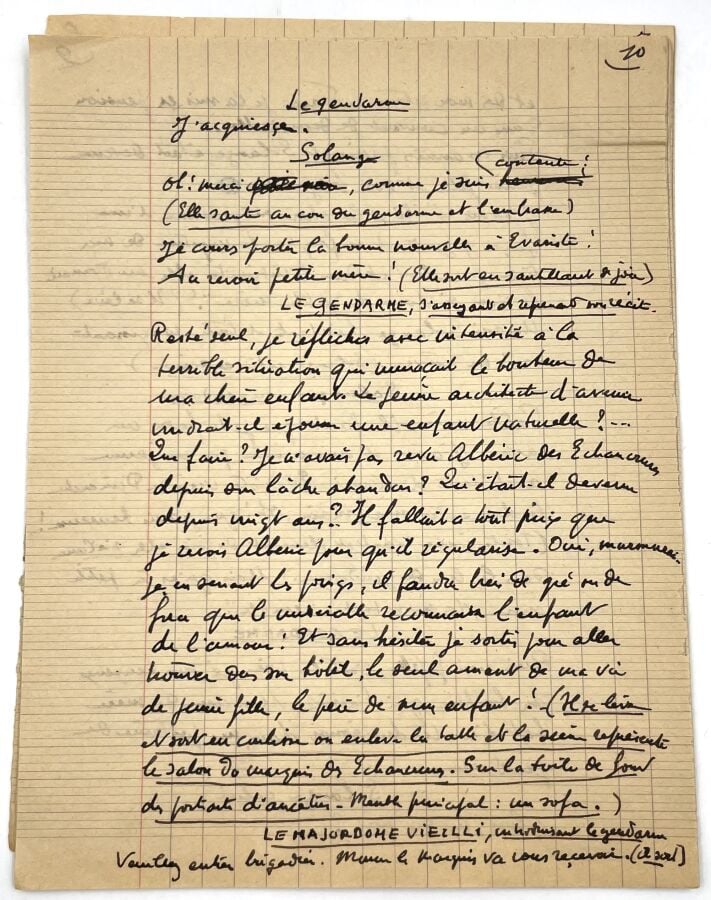 10
Le gendarme
J'acquiesçai.
Solange
Oh! merci petite mère, comme je suis heureuse contente!
(Elle saute au cou du gendarme et l'embrasse)
Je cours porter la bonne nouvelle à Evariste!
Au revoir petite mère! (Elle sort en sautillant de joie)
LE GENDARME, s'asseyant et reprenant son récit.
Resté seul, je réfléchis avec intensité à la
terrible situation qui menaçait le bonheur de
ma chère enfant. Le jeune architecte d'avenir
voudrait-il épouser une enfant naturelle?...
Que faire? Je n'avais pas revu Albéric des Echancrures
depuis son lâche abandon? Qu'était-il devenu
depuis vingt ans? Il fallait à tout prix que
je revois Albéric pour qu'il régularise. Oui, murmurai-
je en serrant les poings, il faudra bien de gré ou de
force que le misérable reconnaisse l'enfant
de l'amour! Et sans hésiter je sortis pour aller
trouver dans son hôtel, le seul amant de ma vie
de jeune fille, le père de mon enfant! (Il se lève
et sort en coulisse on enlève la table et la scène représente
le salon du marquis des Echancrures. Sur la toile de fond
des portraits d'ancêtres - Meuble principal : un sofa.)
LE MAJORDOME VIEILLI, introduisant le gendarme
Veuillez entrer brigadier. Monsieur le Marquis va vous recevoir. (il sort)